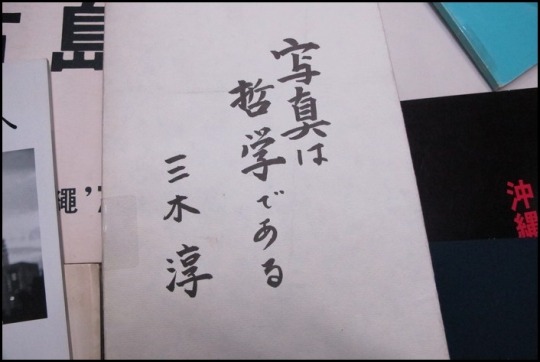 写真は
哲学である
三木淳
島
縄'7
沖縄